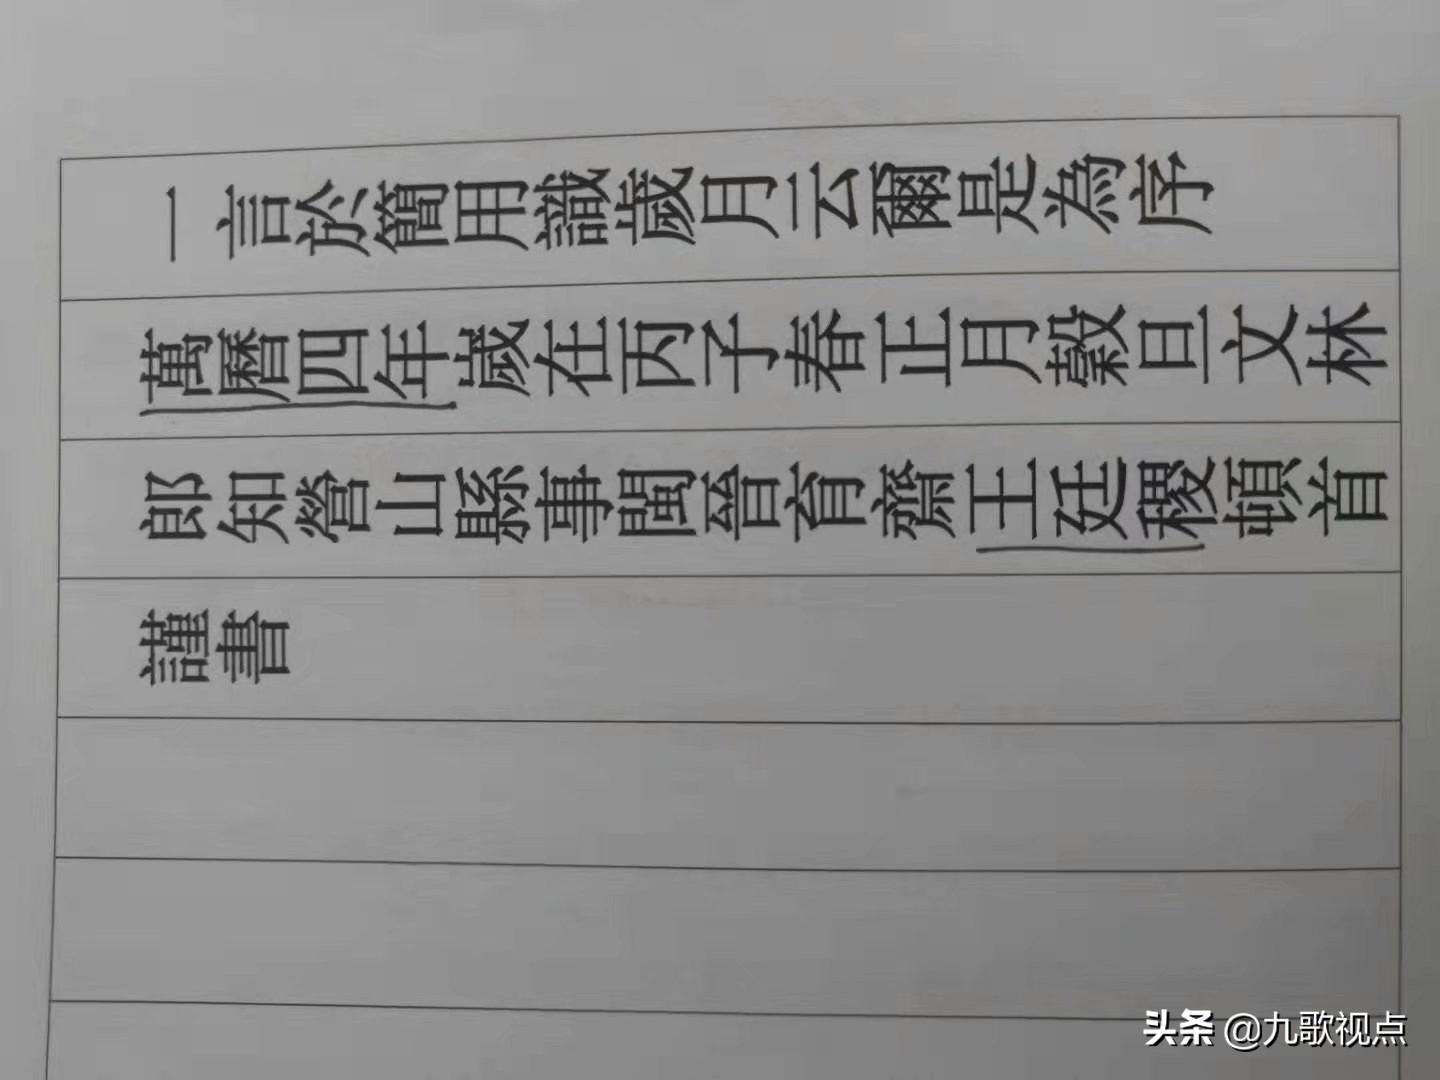 一言於簡用識歲月云爾是為序
萬曆四年歲在丙子春正月穀旦文林
郎知營山縣事閩晉育齋王廷稷頓首
謹書
头条 @九歌视点